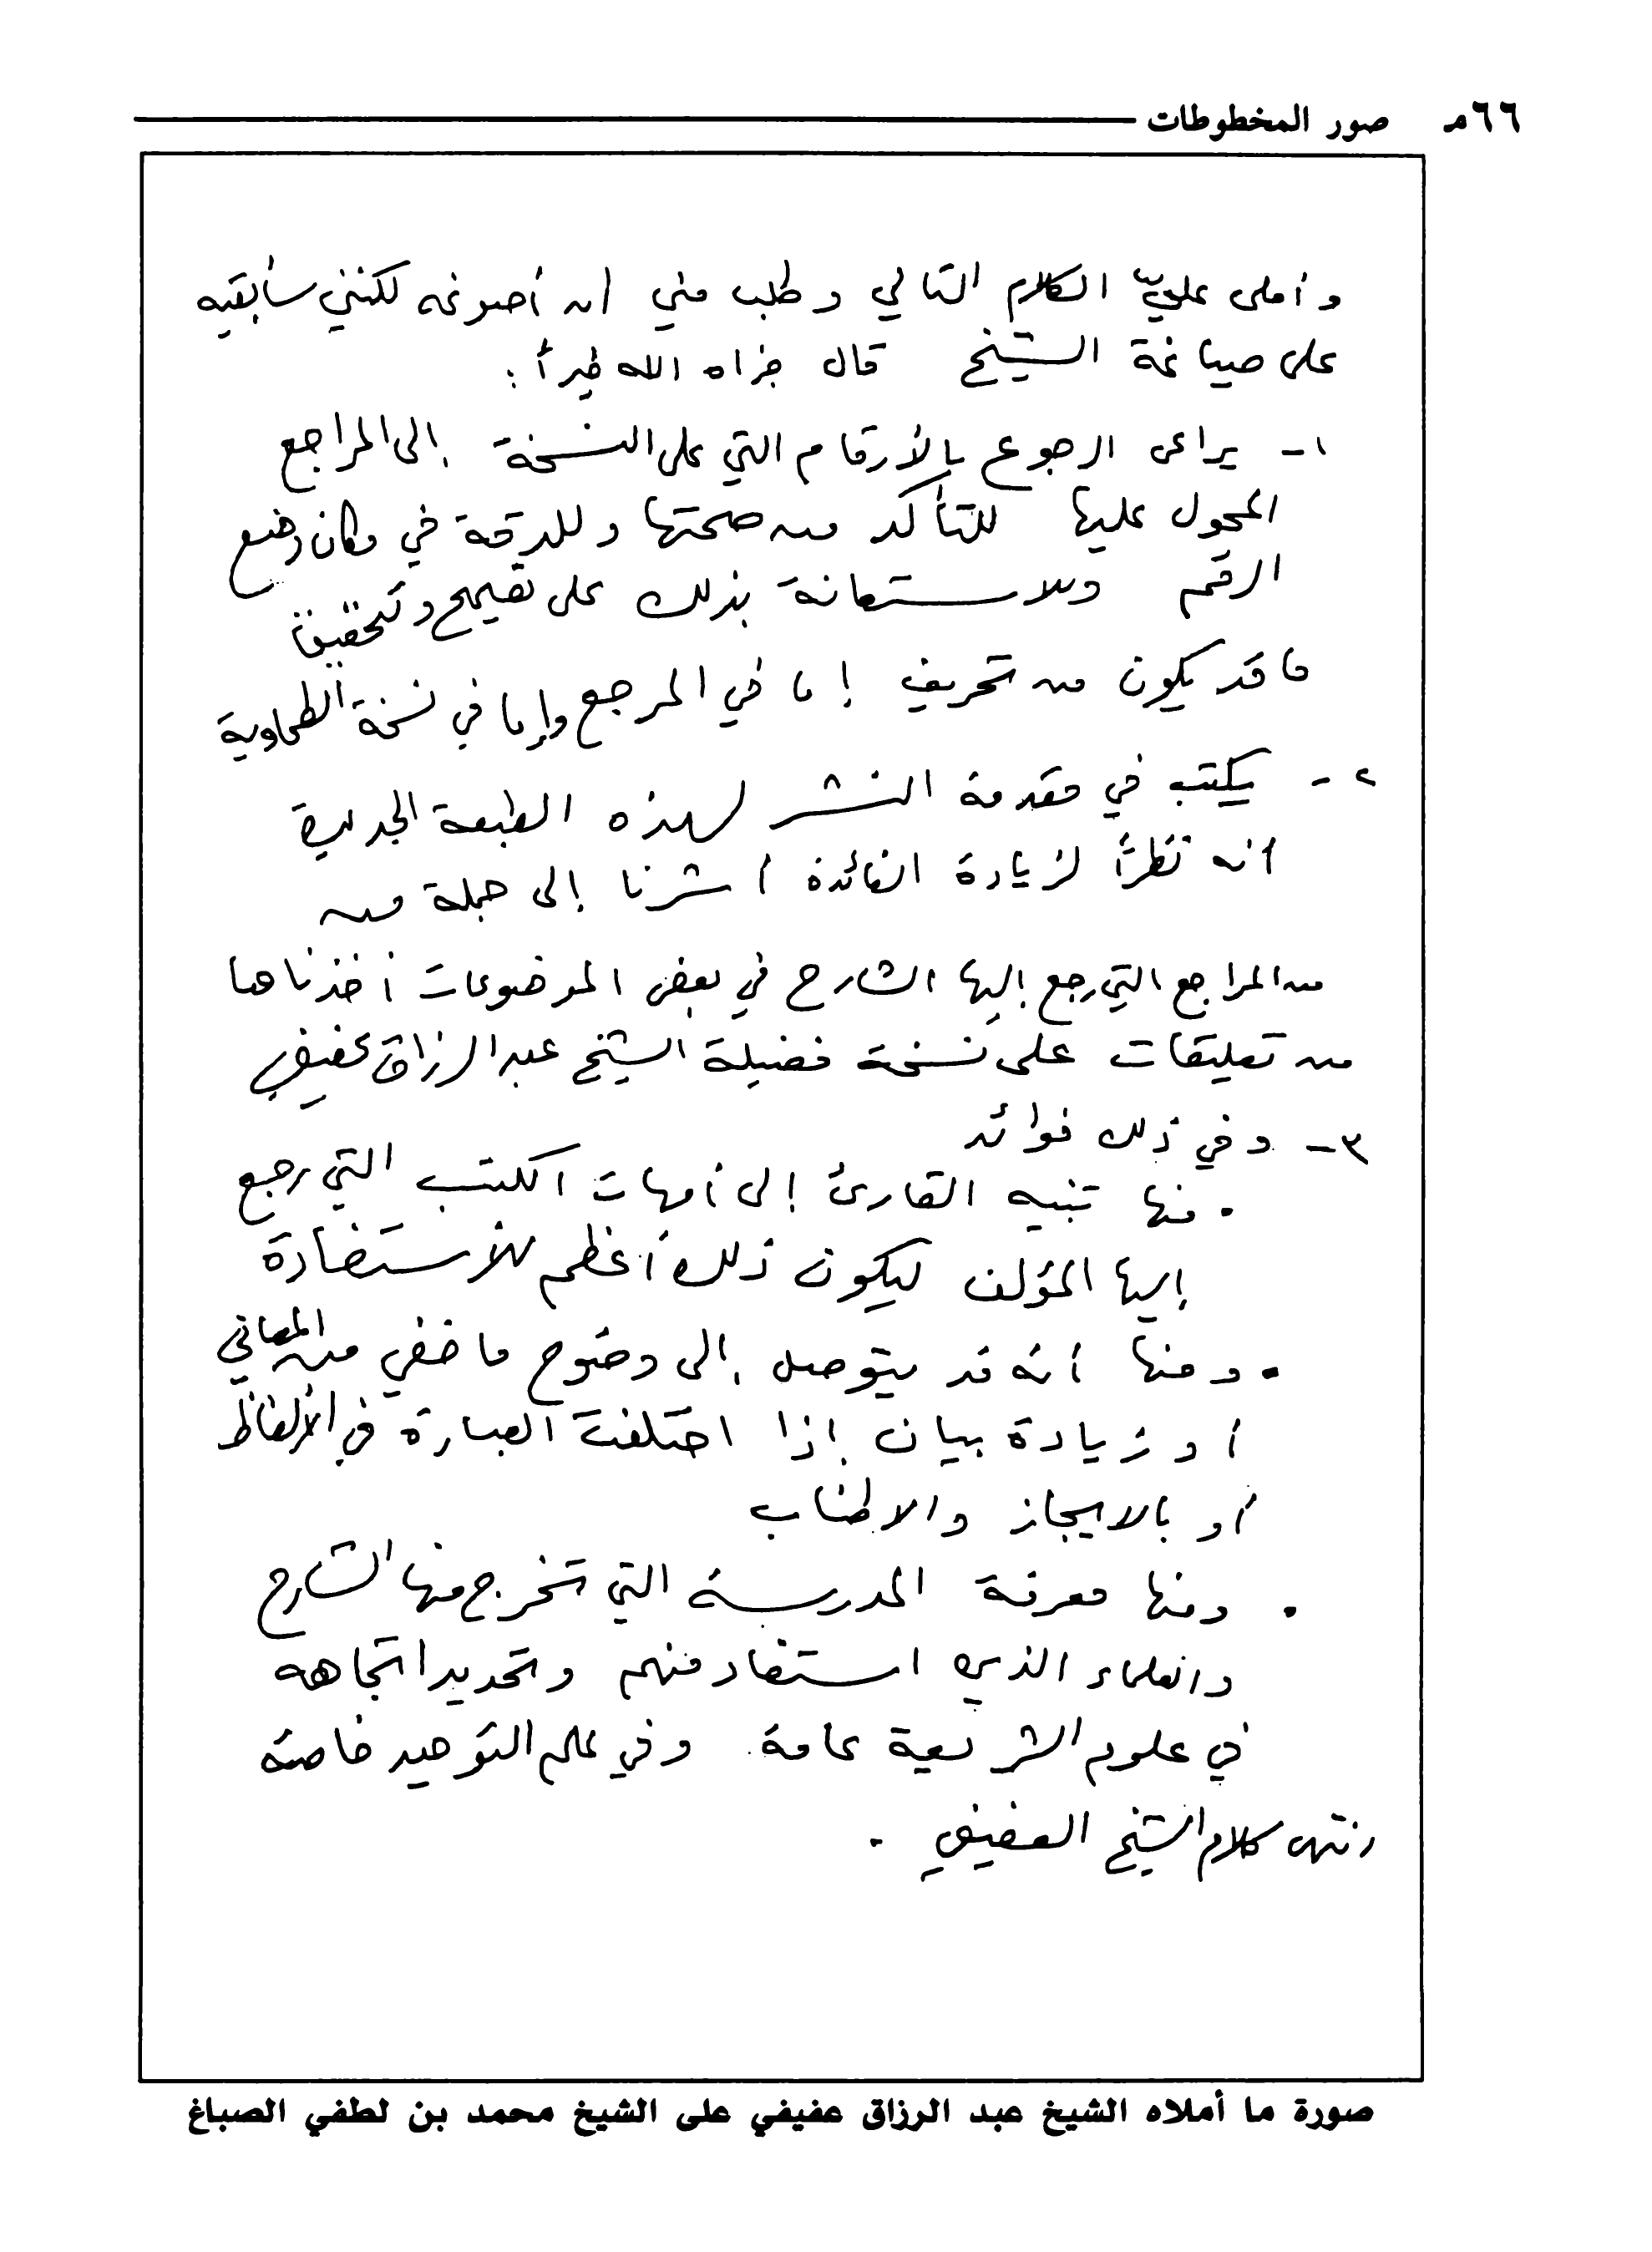 ٦٦م صور المخطوطات
وأملى عليّ الكلام التالي وطلب مني أن أصوغه لكنني سأبقيه
على صياغة الشيخ قال جزاه الله خيراً :
١- يراعى الرجوع بالأرقام التي على النسخة إلى المراجع
المحول عليها للتأكد من صحتها وللدقة في مكان وضع
الرقم وللاستعانة بذلك على تصحيح وتحقيق
ما قد يكون من تحريف إما في المرجع وإما في نسخة الطحاوية
٢- يكتب في مقدمة النشر لهذه الطبعة الجديدة
أنه نظراً لزيادة الفائدة أشرنا إلى جملة من
من المراجع التي رجع إليها الشارح في بعض الموضوعات أخذناها
من تعليقات على نسخة فضيلة الشيخ عبد الرزاق عفيفي
٣- وفي ذلك فوائد
. منها تنبيه القارئ إلى أمهات الكتب التي رجع
إليها المؤلف ليكون ذلك أعظم للأستفادة
. ومنها أنه قد يتوصل إلى وضوح ما خفي من المعاني
أو زيادة بيان إذا اختلفت العبارة في الألفاظ
أو بالايجاز والاطناب
. ومنها معرفة المدرسة التي تخرج منها الشارح
والعلماء الذين استفاد منهم وتحديد اتجاهه
في علوم الشريعة عامة. وفي علم التوحيد خاصة
انتهى كلام الشيخ العفيفي .
صورة ما أملاه الشيخ عبد الرزاق عفيفي على الشيخ محمد بن لطفي الصباغ